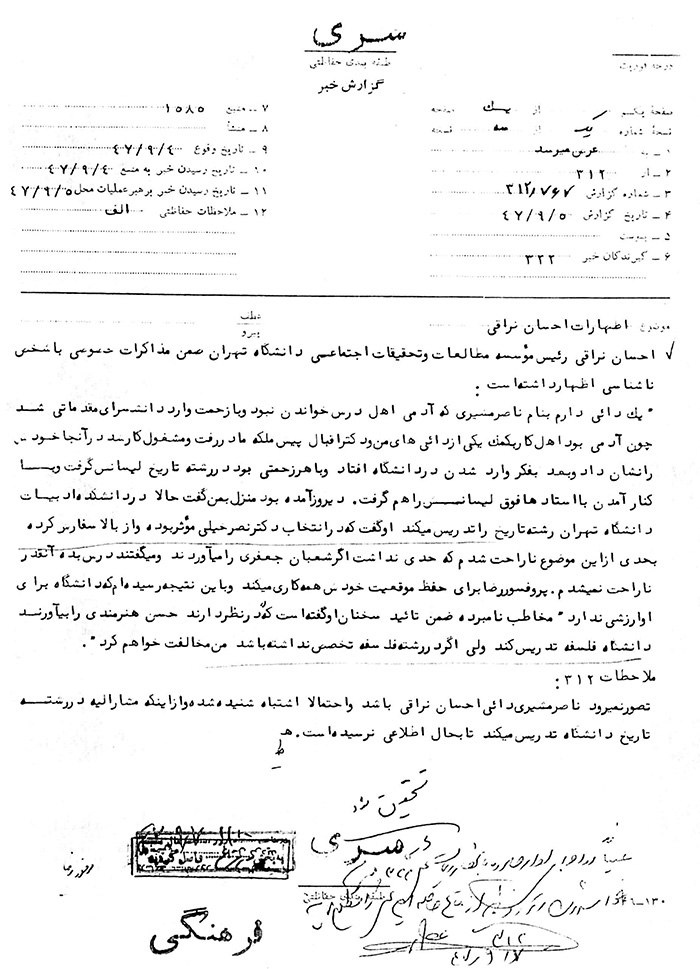 سری
طبقه بندی حفاظتی
گزارش خبر
درجه فوریت
صفحه یکم از یک صفحه
نسخه شماره یک از سه نسخه
۱ ـ به عرض میرسد
۲ ـ از ۳۱۲
۳ ـ شماره گزارش ۳۱۲/۷۶۷
۴ ـ تاریخ گزارش ۴۷/۹/۵
۵ ـ پیوست
۶ ـ گیرندگان خبر ۳۲۲
۷ ـ منبع ۱۵۸۵
۸ ـ منشأ
۹ ـ تاریخ وقوع ۴۷/۹/۴
۱۰ ـ تاریخ رسیدن خبر به منبع ۴۷/۹/۴
۱۱ ـ تاریخ رسیدن خبر برهبر عملیات محل ۴۷/۹/۵
۱۲ ـ ملاحظات حفاظتی الف
موضوع اظهارات احسان نراقی
عطف
پیرو
احسان نراقی رئیس مؤسسه مطالعات وتحقیقات اجتماعی دانشگاه تهران ضمن مذاکرات خصوصی باشخص
ناشناسی اظهارداشته‌است :
" یک دائی دارم بنام ناصرمشیری که آدمی اهل درس خواندن نبود وبازحمت وارد دانشسرای مقدماتی شد
چون آدمی بود اهل کار بکمک یکی ازدائی های من ودکتراقبال پیش ملکه مادر رفت ومشغول کارشد درآنجا خود ـ
رانشان داد وبعد بفکر وارد شدن در دانشگاه افتاد وباهرزحمتی بود در رشته تاریخ لیسانس گرفت وبا
کنار آمدن بااستاد ها فوق لیسانس راهم گرفت . دیروزآمده بود منزل بمن گفت حالا در دانشکده ادبیات
دانشگاه تهران رشته تاریخ را تدریس میکند اوگفت که درانتخاب دکترنصرخیلی مؤثربوده و از بالا سفارش کرده
بحدی ازاین موضوع ناراحت شدم که حدی نداشت اگرشعبان جعفری رامیآوردند ومیگفتند درس بده آنقدر
ناراحت نمیشدم . پروفسوررضا برای حفظ موقعیت خودش همه کاری میکند وباین نتیجه رسیده‌ام که دانشگاه برای
اوارزشی ندارد " مخاطب نامبرده ضمن تائید سخنان اوگفته‌است که درنظردارند حسن هنرمندی رابیآورند
دانشگاه فلسفه تدریس کند ولی اگر دررشته فلسفه تخصص نداشته باشد من مخالفت خواهم کرد " .
ملاحظات ۳۱۲ :
تصورنمیرود ناصرمشیری دائی احسان نراقی باشد واحتمالا اشتباه شنیده شده وازاینکه مشارالیه در رشته
تاریخ دانشگاه تدریس میکند تابحال اطلاعی نرسیده‌است . هـ
ط
تحقیق شد
سری
طبقه بندی حفاظتی
۳۱۲
فرهنگی